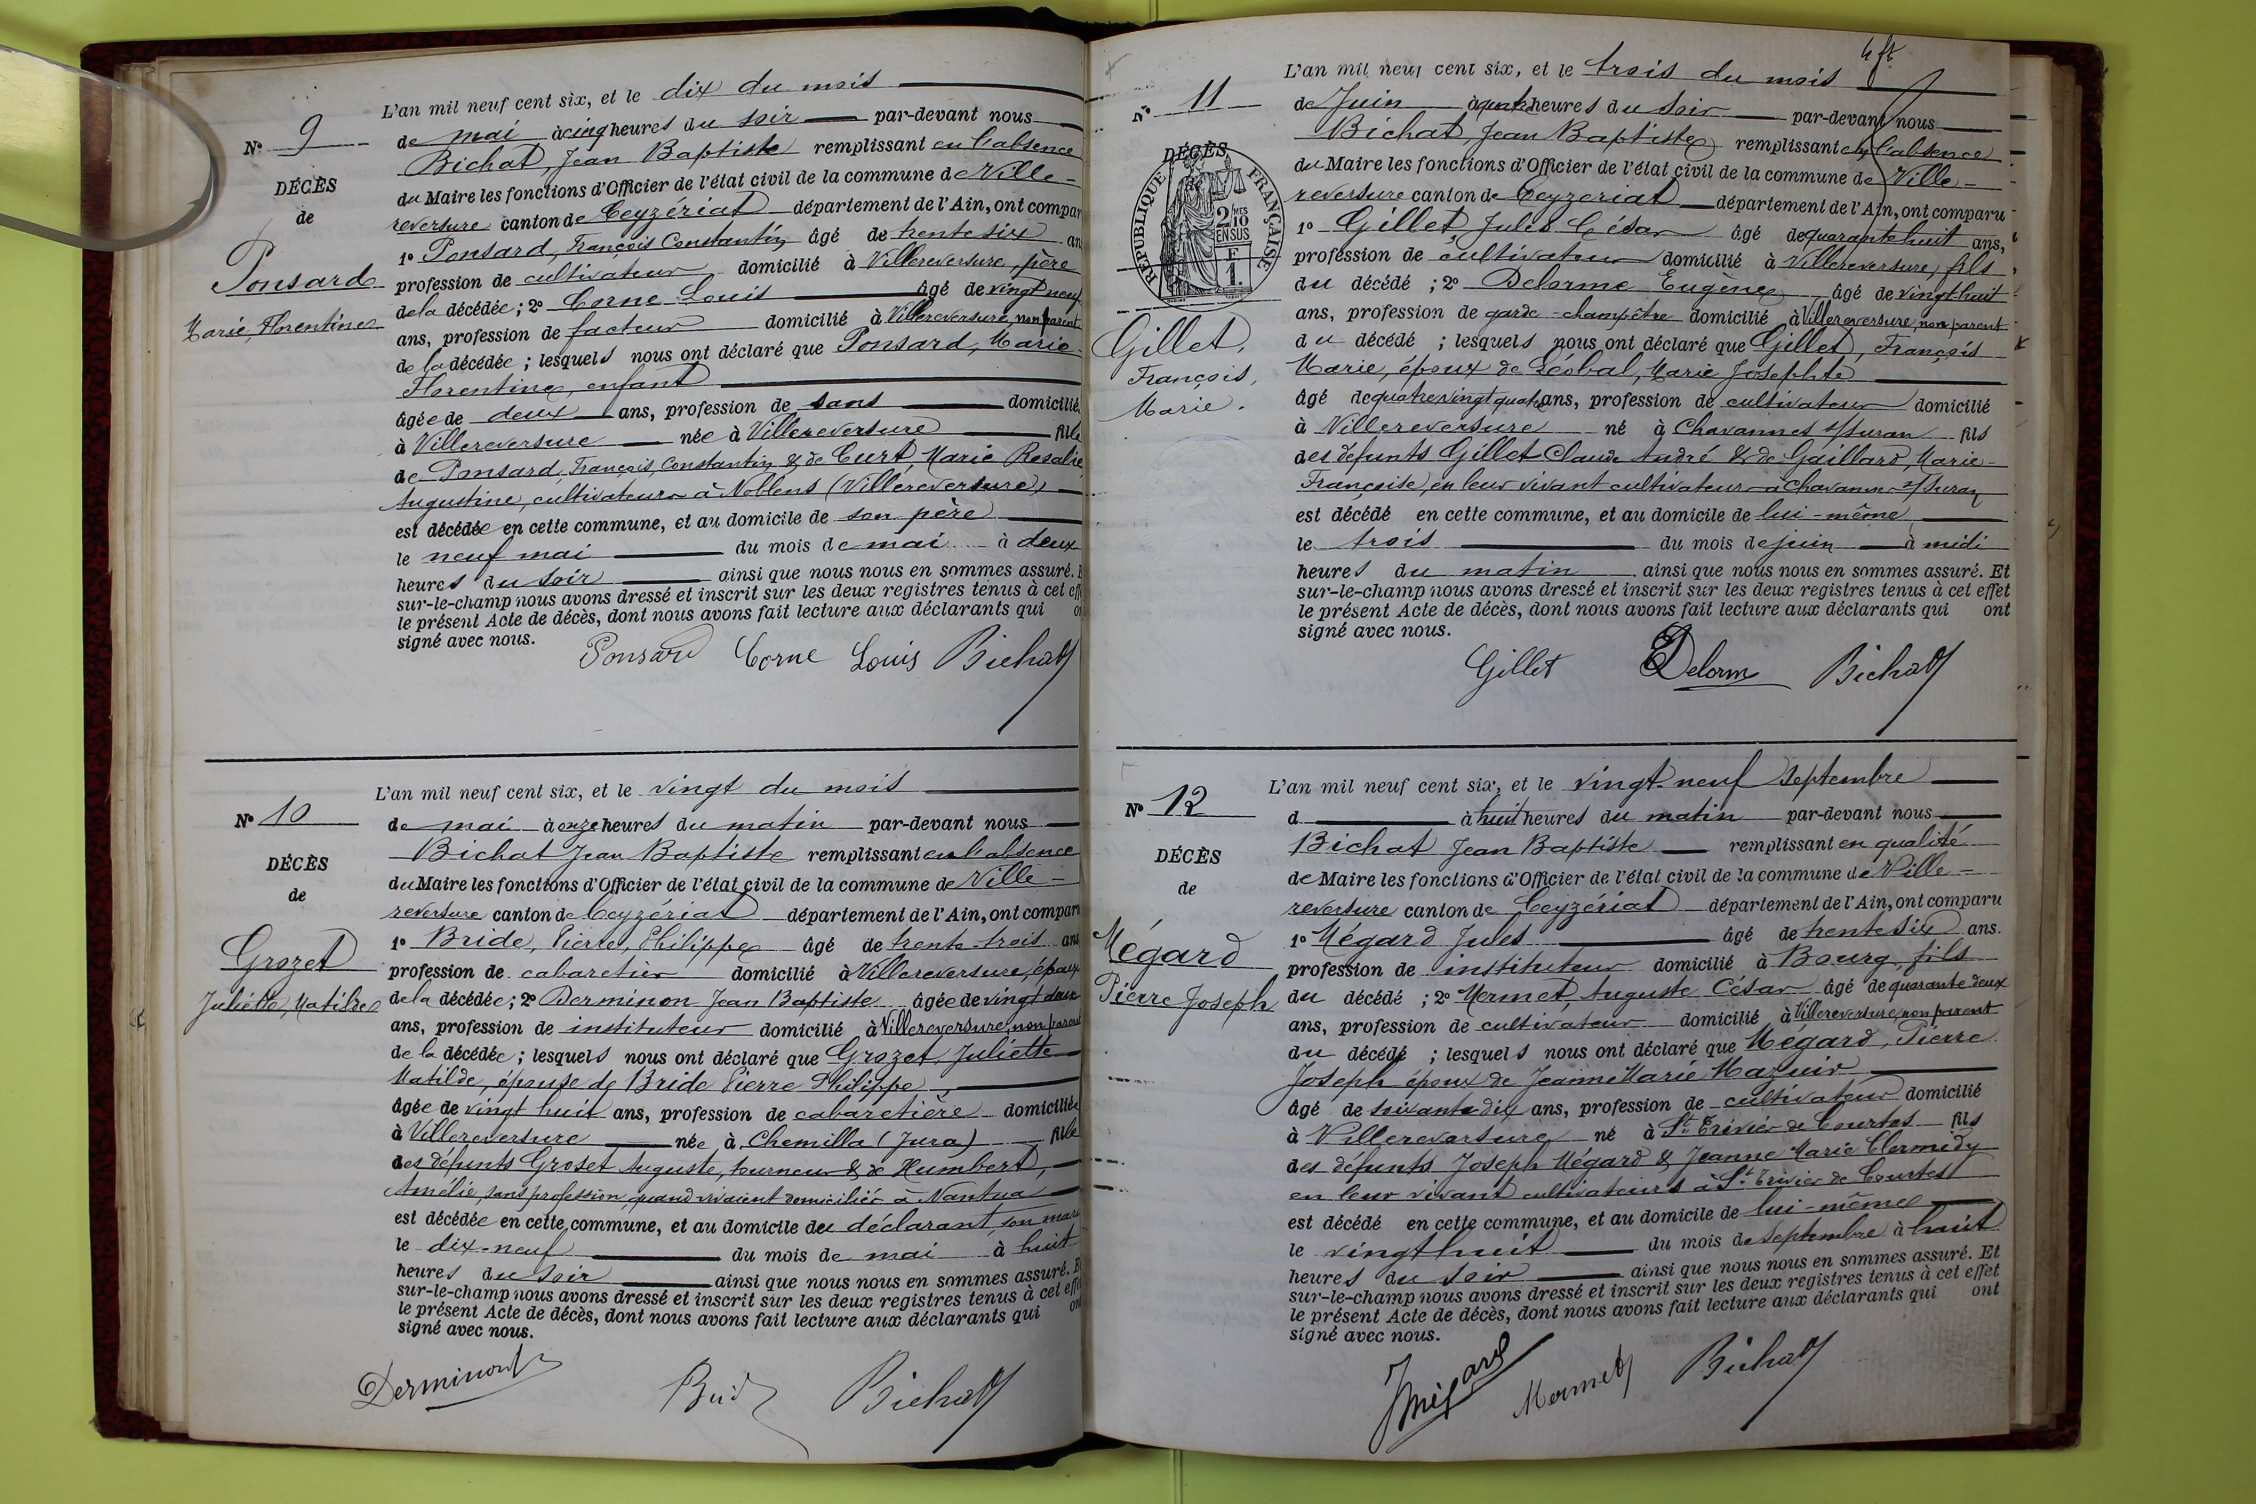 L'an mil neuf cent six, et le dix du mois
Nº 9
de mai à cinq heures du soir par-devant nous
Bichat, Jean Baptiste remplissant en l'absence
DÉCÈS
du Maire les fonctions d'Officier de l'état civil de la commune de Ville-
de
reversure canton de Ceyzériat département de l'Ain, ont compar
1º Ponsard, François Constantin âgé de trente six an
Ponsard
profession de cultivateur domicilié à Villereversure, père
de la décédée ; 2º Corne Louis âgé de vingt neuf
Marie, Florentine
ans, profession de facteur domicilié à Villereversure, non parent
de la décédée ; lesquels nous ont déclaré que Ponsard, Marie
Florentine, enfant
âgée de deux ans, profession de sans domiciliée
à Villereversure née à Villereversure fille
de Ponsard, François, Constantin & de Curt, Marie Rosalie
Augustine, cultivateurs à Noblens (Villereversure)
est décédée en cette commune, et au domicile de son père
le neuf mai du mois de mai à deux
heures du soir ainsi que nous nous en sommes assuré. E
sur-le-champ nous avons dressé et inscrit sur les deux registres tenus à cet eff
le présent Acte de décès, dont nous avons fait lecture aux déclarants qui on
signé avec nous.
Ponsard Corne Louis Bichat
L'an mil neuf cent six, et le vingt du mois
Nº 10
de mai à onze heures du matin par-devant nous
Bichat Jean Baptiste remplissant en l'absence
DÉCÈS
du Maire les fonctions d'Officier de l'état civil de la commune de Ville-
de
reversure canton de Ceyzériat département de l'Ain, ont comparu
1º Bride, Pierre, Philippe âgé de trente-trois ans
Grozet
profession de cabaretier domicilié à Villereversure, époux
Juliette, Matilde
de la décédée ; 2º Derminon Jean Baptiste âgé de vingt deux
ans, profession de instituteur domicilié à Villereversure, non parent
de la décédée ; lesquels nous ont déclaré que Grozet, Juliette
Matilde, épouse de Bride Pierre Philippe
âgée de vingt huit ans, profession de cabaretière domiciliée
à Villereversure née à Chemilla (Jura) fille
des défunts Groset Auguste, tourneur & de Humbert,
Amélie, sans profession, quand vivaient domiciliés à Nantua
est décédée en cette commune, et au domicile du déclarant, son mari
le dix-neuf du mois de mai à huit
heures du soir ainsi que nous nous en sommes assuré. E
sur-le-champ nous avons dressé et inscrit sur les deux registres tenus à cet effet
le présent Acte de décès, dont nous avons fait lecture aux déclarants qui ont
signé avec nous.
Derminon Brid Bichat
L'an mil neuf cent six, et le trois du mois
Nº 11
de Juin à quatre heures du soir par-devant nous
Bichat, Jean Baptiste remplissant en l'absence
DÉCÈS
RÉPUBLIQUE FRANÇAISE
2/10 MES
EN SUS
F
1.
du Maire les fonctions d'Officier de l'état civil de la commune de Ville-
reversure canton de Ceyzeriat département de l'Ain, ont comparu
1º Gillet, Jules César âgé de quarante huit ans,
profession de cultivateur domicilié à Villereversure, fils
du décédé ; 2º Delorme Eugène âgé de vingt-huit
ans, profession de garde-champêtre domicilié à Villereversure, non parent
Gillet,
François,
Marie.
du décédé ; lesquels nous ont déclaré que Gillet, François
Marie, époux de Léobal, Marie Josephte
âgé de quatre vingt quatre ans, profession de cultivateur domicilié
à Villereversure né à Chavannes s/Suran fils
des défunts Gillet Claude André & de Gaillard, Marie-
Françoise, en leur vivant cultivateurs à Chavannes s/Suran
est décédé en cette commune, et au domicile de lui-même
le trois du mois de juin à midi
heures du matin ainsi que nous nous en sommes assuré. Et
sur-le-champ nous avons dressé et inscrit sur les deux registres tenus à cet effet
le présent Acte de décès, dont nous avons fait lecture aux déclarants qui ont
signé avec nous.
Gillet EDelorm Bichat
L'an mil neuf cent six, et le vingt-neuf septembre
Nº 12
d à huit heures du matin par-devant nous
Bichat Jean Baptiste remplissant en qualité
DÉCÈS
de Maire les fonctions d'Officier de l'état civil de la commune de Ville-
de
reversure canton de Ceyzériat département de l'Ain, ont comparu
1º Mégard Jules âgé de trente six ans.
Mégard
profession de instituteur domicilié à Bourg, fils
Pierre Joseph
du décédé ; 2º Mermet, Auguste César âgé de quarante deux
ans, profession de cultivateur domicilié à Villereversure, non parent
du décédé ; lesquels nous ont déclaré que Mégard, Pierre
Joseph époux de Jeanne Marie Mazuir
âgé de soixante-dix ans, profession de cultivateur domicilié
à Villereversure né à St. Trivier de Courtes fils
des défunts Joseph Mégard & Jeanne Marie Clermidy
en leur vivant cultivateurs à St. Trivier de Courtes
est décédé en cette commune, et au domicile de lui-même
le vingt huit du mois de Septembre à huit
heures du soir ainsi que nous nous en sommes assuré. Et
sur-le-champ nous avons dressé et inscrit sur les deux registres tenus à cet effet
le présent Acte de décès, dont nous avons fait lecture aux déclarants qui ont
signé avec nous.
JMégard Mermet Bichat